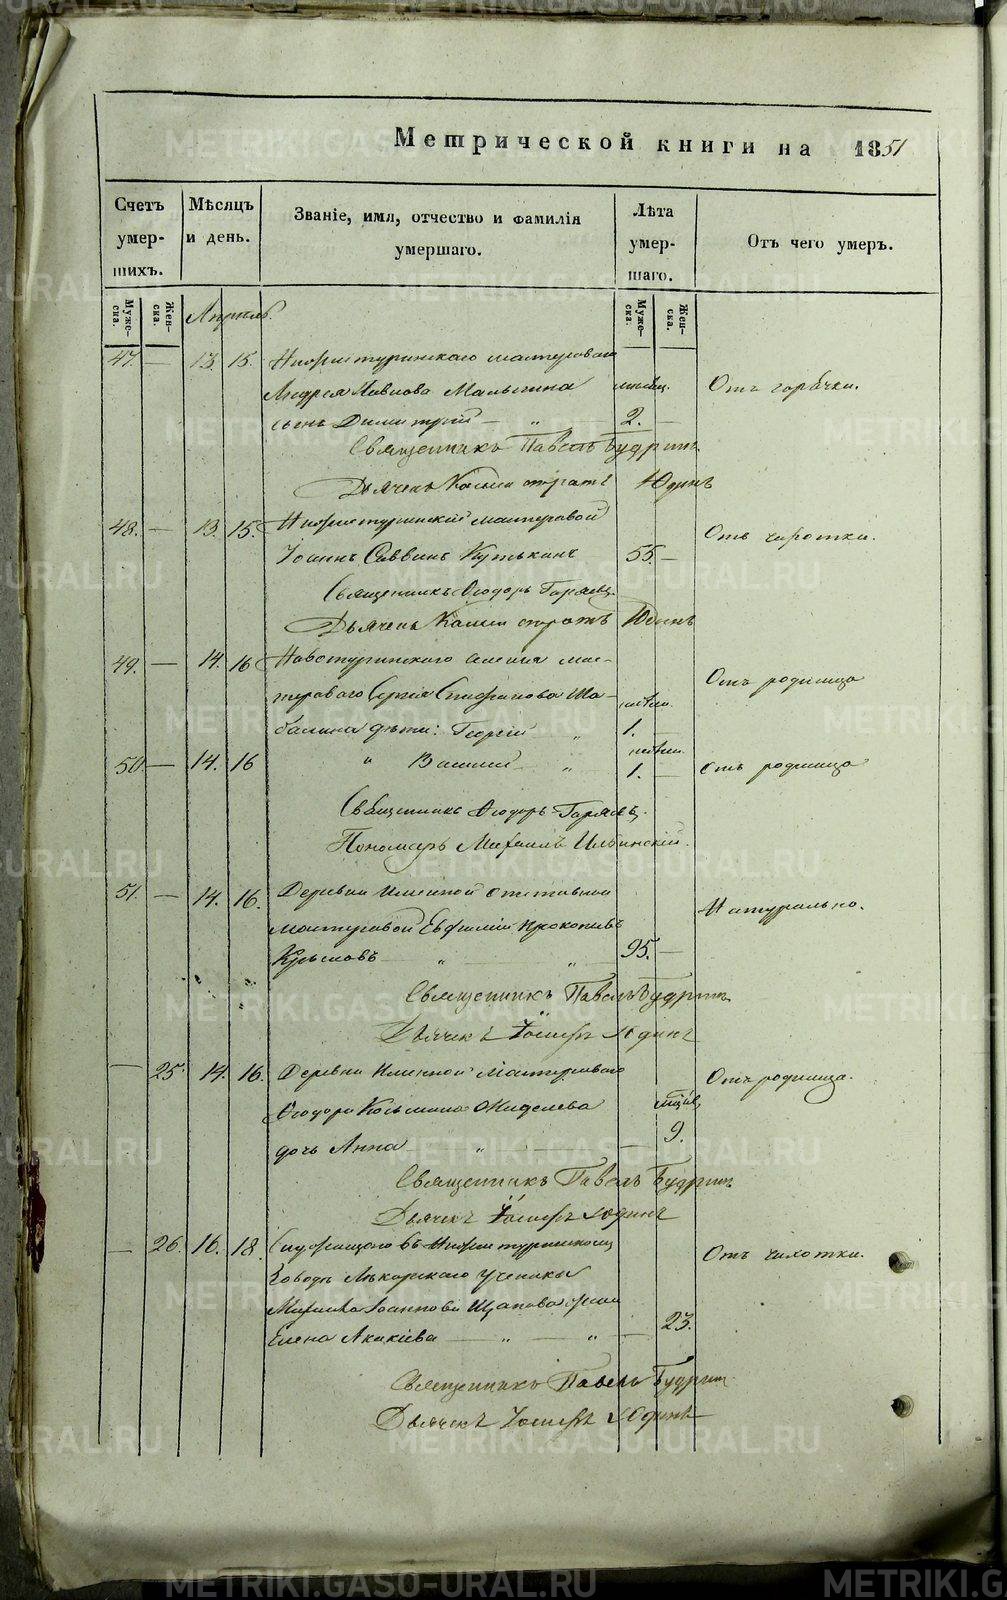 Метрической книги на 1851
Счетъ умер-шихъ.
Мѣсяцъ и день.
Званіе, имя, отчество и фамилія умершаго.
Лѣта умер-шаго.
Отъ чего умеръ.
Муже-ска.
Жен-ска.
Апрель.
Муже-ска.
Жен-ска.
47. — 13. 15. Нижнетуринскаго мастероваго
Андрея Малыгина Отъ горячки.
сынъ Димитрій — „ 2. —
Священникъ Павелъ Будринъ
Дьячекъ Юдинъ
48. — 13. 15. Нижнетуринскій мастеровой Отъ чахотки.
Іоаннъ Саввинъ Кутькинъ 55. —
Священникъ Ѳеодоръ Горяевъ.
Дьячекъ Юдинъ
49. — 14. 16 Новотуринскаго селенія мас-
тероваго Сергія Стефанова Ша- Отъ родимца
балина дѣти: Георгій „ 1. —
50. — 14. 16 „ Василій — „ 1. — отъ родимца
Священникъ Ѳеодоръ Горяевъ.
Пономарь Михаилъ Ильинскій.
51. — 14. 16. Деревни Именной отставной Натурально.
мастеровой Евфимій Прокопьевъ
Крысовъ „ — „ 95. —
Священникъ Павелъ Будринъ
Дьячекъ Іосифъ Юдинъ
— 25. 14. 16. Деревни Именной мастероваго Отъ родимца.
Ѳеодора Козьмина
дочь Анна — „ — 9.
Священникъ Павелъ Будринъ
Дьячекъ Іосифъ Юдинъ
— 26. 16. 18. въ Нижнетуринскомъ Отъ чахотки.
Заводѣ Лѣкарскаго ученика
Іоаннова Щапова жена
Елена Акакіева — „ — „ — 23.
Священникъ Павелъ Будринъ
Дьячекъ Іосифъ Юдинъ
METRIKI.GASO-URAL.RU